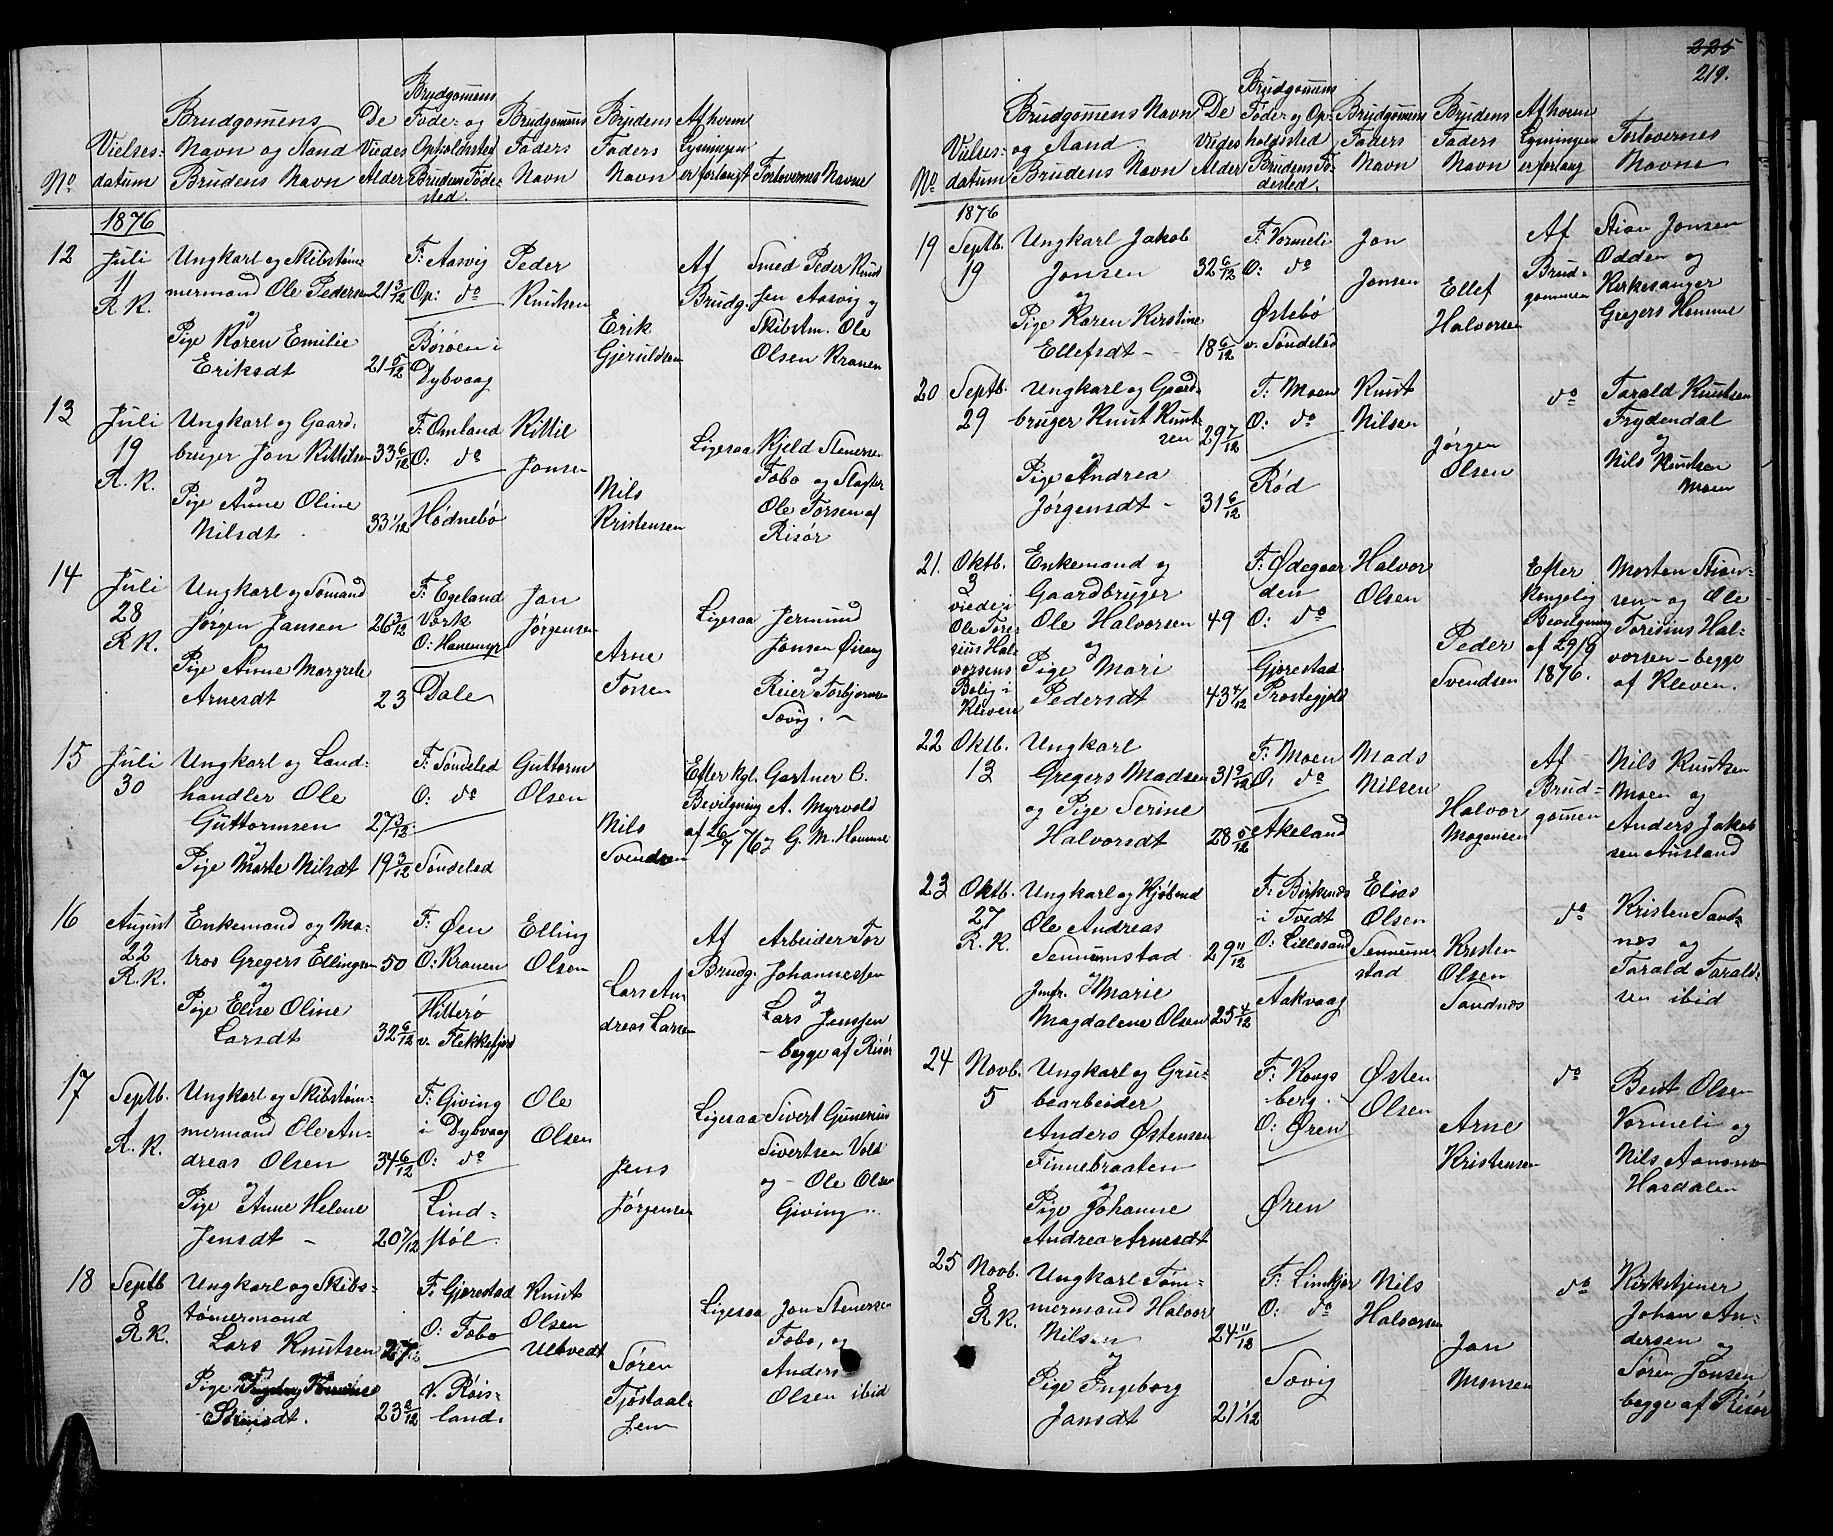 No.
Vielses-
datum
Brudgomens
Navn og Stand
Brudens Navn
De
Viedes
Alder
Brudgomens
Føde- og
Opholdssted
Brudens Føde-
sted.
Brudgomens
Faders
Navn
Brudens
Faders
Navn
Af hvem
Lysningen
er forlangt
Forlovernes Navne
1876
12
Juli
11
R. K.
Ungkarl og Skibstøm-
mermand Ole Pedersen
og
Pige Karen Emilie
Eriksdt
21 3/12
21 5/12
F: Aasvig
Op: do
Børøen i
Dybvaag
Peder
Knutsen
Erik
Gjeruldsen
Af
Brudg.
Smed Peder Knut
sen Aasvig og
Skibstm. Ole
Olsen Kranen
13
Juli
19
R. K.
Ungkarl og Gaard-
bruger Jon Kittilsen
og
Pige Anne Oline
Nilsdt
33 6/12
33 11/12
F: Omland
O: do
Hødnebø
Kittil
Jonsen
Nils
Kristensen
Ligesaa
Kjeld Stenersen
Fobo og Slagter
Ole Torsen af
Risør
14
Juli
28
R. K.
Ungkarl og Sømand
Jørgen Jansen
Pige Anne Margrete
Arnesdt
26 3/12
23
F: Egeland
Værk
O: Hanemyr
Dale
Jan
Jørgensen
Arne
Tossen
Ligesaa
Jermund
Jonsen
og
Reier Torbjørnsen
Søvig.
15
Juli
30
Ungkarl og Land-
handler Ole
Guttormsen
og
Pige Marte Nilsdt
27 3/12
19 3/12
F: Søndeled
O: do
Søndeled
Guttorm
Olsen
Nils
Svendsen
Efter kgl.
Bevilgning
af 26/7 76
Gartner C.
A. Myrvold
og G. M. Homme
16
August
22
R. K.
Enkemand og Ma-
tros Gregers Ellingsen
og
Pige Elise Oline
Larsdt
50
32 6/12
F: Øen
O: Kranen
Hitterø
v. Flekkefjord
Elling
Olsen
Lars An-
dreas Larsen
Af
Brudg.
Arbeider Tor
Johannessen
og
Lars Jenssen
- begge af Risør
17
Septb.
R. K.
Ungkarl og Skibstøm-
mermand Ole An-
dreas Olsen
og
Pige Anne Helene
Jensdt -
34 6/12
20 7/12
F: Giving
i Dybvaag
O: do
Lind-
støl
Ole
Olsen
Jens
Jørgensen
Ligesaa
Sivert Gunerius
Sivertsen Vold
og - Ole Olsen
Giving.
18
Septb
8
R. K.
Ungkarl og Skibs-
tømermand
Lars Knutsen
og
Pige Ingeborg
23 2/12
F: Gjerestad
O: Fobo
v. Røis-
land.
Knut
Olsen
Ulsvedt
Søren
Tjøstaal-
sen
Ligesaa
Jon Stenersen
Fobo, og
Anders
Olsen ibid
225
219.
No.
Vielses-
datum
Brudgomens Navn
og Stand
Brudens Navn
De
Viedes
Alder
Brudgomens
Føde- og Op-
holdssted
Brudens Fø-
dested.
Brudgomens
Faders
Navn
Brudens
Faders
Navn
Af hvem
Lysningen
er forlang
Forlovernes
Navne
1876
19
Septb.
19
Ungkarl Jakob
Jonsen
og
Pige Karen Kirstine
Ellefsdt -
32 6/12
18 6/12
F: Vormeli
O: do
Østebø
v. Søndeled
Jon
Jonsen
Ellef
Halvorsen
Af
Brud-
gommen
Stian Jonsen
Odden og
Kirkesanger
Gregers Homme
20
Septb.
29
Ungkarl og Gaard-
bruger Knut Knut-
sen
og
Pige Andrea
Jørgensdt -
29 7/12
31 6/12
F: Moen
O: do
Rød
Knut
Nilsen
Jørgen
Olsen
do
Tarald Knutsen
Frydendal
og
Nils Knutsen
Moen
21.
Oktb.
3
viede i
Ole Tore-
sius Hal-
vorsens
Bolig i
Kleven
Enkemand og
Gaardbruger
Ole Halvorsen
og
Pige Mari
Pedersdt
49
43 4/12
F: Ødegaar-
den
O: do
Gjerestad
Prestegjeld
Halvor
Olsen
Peder
Svendsen
Efter
Kongelig
Bevilgning
af 29/9
1876.
Morten Stian-
sen - og Ole
Toresius Hal-
vorsen - begge
af Kleven.
22
Oktb.
13
Ungkarl
Gregers Madsen
og Pige Serine
Halvorsdt
31 9/12
28 5/12
F: Moen
O: do
Akeland
Mads
Nilsen
Halvor
Mogensen
Af
Brud-
gomen
Nils Knutsen
Moen og
Anders Jakob
sen Ausland
23
Oktb.
27
R. K.
Ungkarl og Kjøbmd
Ole Andreas
Sennumstad
og
Jmfr. Marie
Magdalene Olsen
29 11/12
25 4/12
F: Birkenæs
i Tvedt
O: Lillesand
Aakvaag
Elias
Olsen
Sennumstad
Kristen
Olsen
Sandnæs
do
Kristen Sand-
næs og
Tarald Tarald-
sen ibid
24
Novb.
5
Ungkarl og Gru-
bearbeider
Anders Østensen
Finnebraaten
og
Pige Johanne
Andrea Arnesdt
F: Kongs
berg.
O: Øren
Øren
Østen
Olsen
Arne
Kristensen
do
Bent Olsen
Vormeli og
Nils Aanonsen
Hasdalen
25
Novb.
8
R. K.
Ungkarl Tøm-
mermand Halvor
Nilsen
og
Pige Ingeborg
Jansdt
24 11/12
21 1/12
F: Limkjær
O: do
Søvig
Nils
Halvorsen
Jan
Monsen
do
Kirketjener
Johan An-
dersen
og
Søren Jonsen
begge af Risør